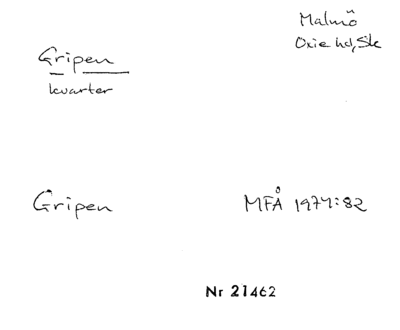 Malmö
Oxie hd, Sk
Gripen
kvarter
Gripen
MFÅ 1974:82
Nr 21462